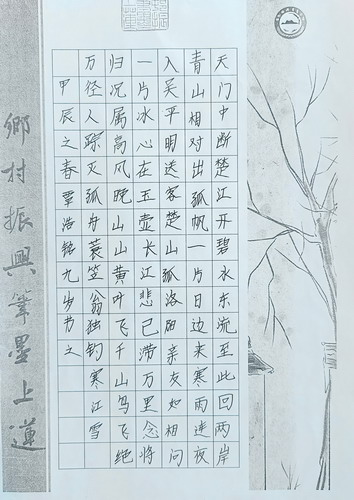 天门中断楚江开碧水东流至此回两岸
青山相对出孤帆一片日边来寒雨连夜
入吴平明送客楚山孤洛阳亲友如相问
一片冰心在玉壶长江悲已滞万里念将
归况属高风晚山山黄叶飞千山鸟飞绝
万径人踪灭孤舟蓑笠翁独钓寒江雪
甲辰之春覃浩铭九岁书之
鄉村振興筆墨上蓮